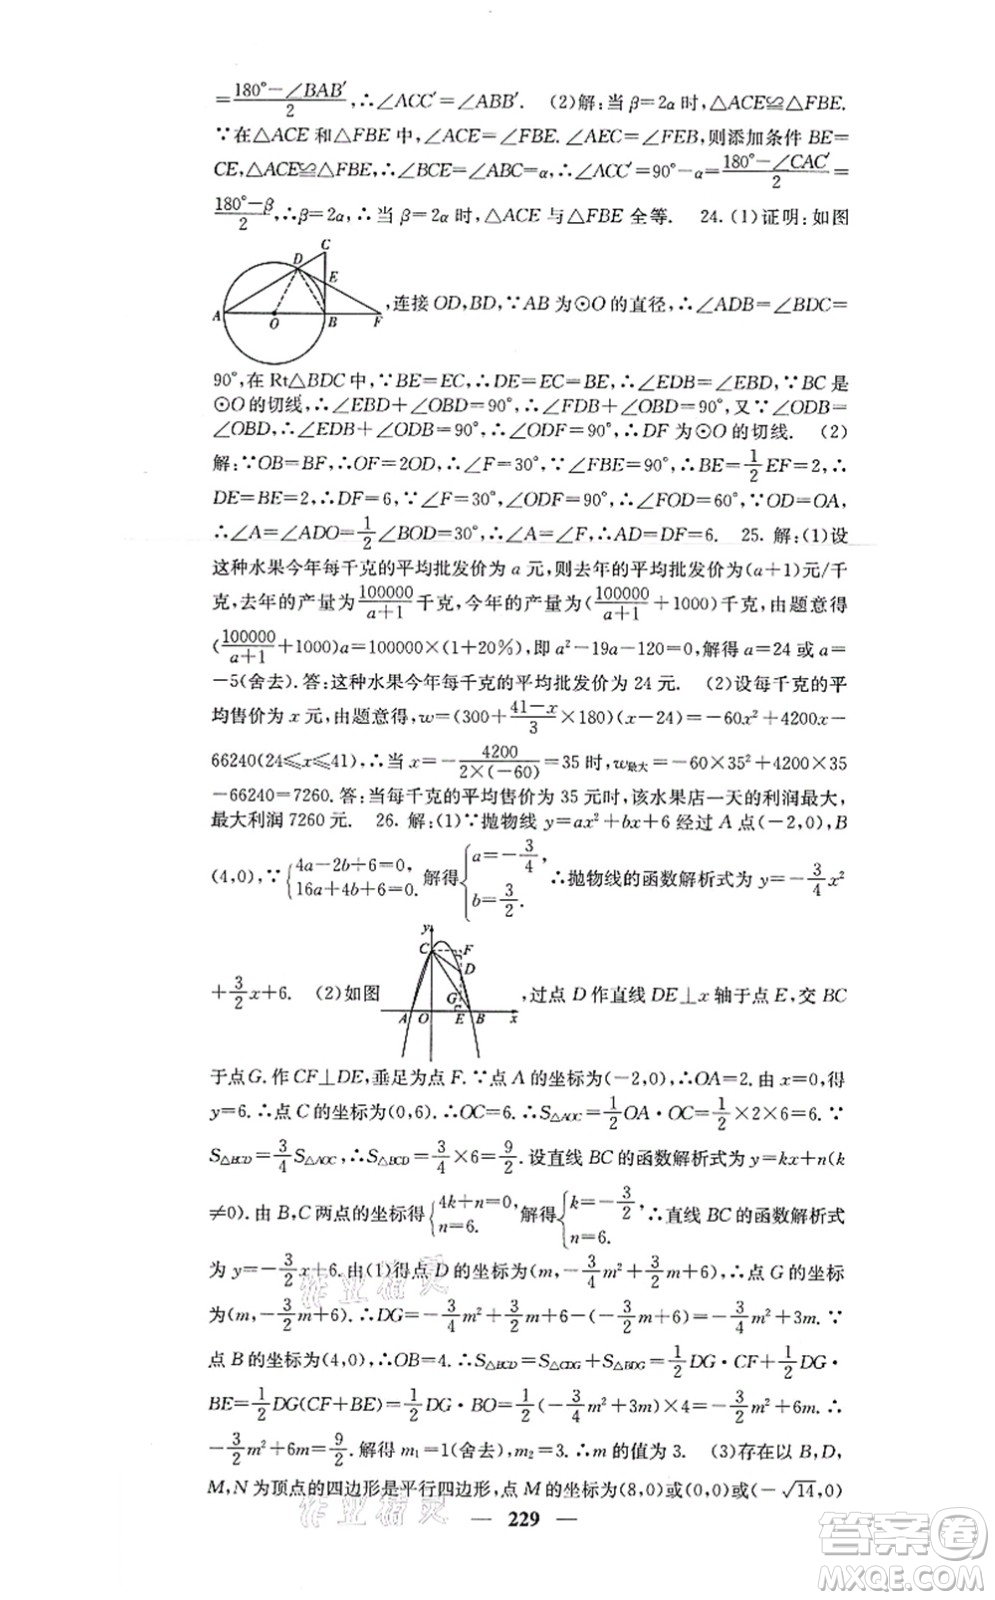 =(180°-∠BAB′)/2,∴∠ACC′=∠ABB′. (2)解:当β=2α时,△ACE≌△FBE.
∵在△ACE和△FBE中,∠ACE=∠FBE.∠AEC=∠FEB,则添加条件BE=
CE,△ACE≌△FBE,∴∠BCE=∠ABC=α,∴∠ACC′=90°-α=(180°-∠CAC′)/2=
(180°-β)/2,∴β=2α,∴当β=2α时,△ACE与△FBE全等. 24.(1)证明:如图
C
D
E
A
O
B
F
,连接OD,BD,∵AB为⊙O的直径,∴∠ADB=∠BDC=
90°,在Rt△BDC中,∵BE=EC,∴DE=EC=BE,∴∠EDB=∠EBD,∵BC是
⊙O的切线,∴∠EBD+∠OBD=90°,∴∠FDB+∠OBD=90°,又∵∠ODB=
∠OBD,∴∠EDB+∠ODB=90°,∴∠ODF=90°,∴DF为⊙O的切线. (2)
解:∵OB=BF,∴OF=2OD,∴∠F=30°,∵∠FBE=90°,∴BE=1/2EF=2,∴
DE=BE=2,∴DF=6,∵∠F=30°,∠ODF=90°,∴∠FOD=60°,∵OD=OA,
∴∠A=∠ADO=1/2∠BOD=30°,∴∠A=∠F,∴AD=DF=6. 25. 解:(1)设
这种水果今年每千克的平均批发价为a元,则去年的平均批发价为(a+1)元/千
克,去年的产量为100000/(a+1)千克,今年的产量为(100000/(a+1)+1000)千克,由题意得
(100000/(a+1)+1000)a=100000×(1+20%),即a²-19a-120=0,解得a=24或a=
-5(舍去).答:这种水果今年每千克的平均批发价为24元. (2)设每千克的平
均售价为x元,由题意得,w=(300+(41-x)/3×180)(x-24)=-60x²+4200x-
66240(24⩽x⩽41),∴当x=-4200/(2×(-60))=35时,w最大=-60×35²+4200×35
-66240=7260.答:当每千克的平均售价为35元时,该水果店一天的利润最大,
最大利润7260元. 26. 解:(1)∵抛物线y=ax²+bx+6经过A点(-2,0),B
(4,0),∵{4a-2b+6=0, 16a+4b+6=0. 解得{a=-3/4, b=3/2. ∴抛物线的函数解析式为y=-3/4x²
+3/2x+6. (2)如图
y
C
F
D
G
A
O
E
B
x
,过点D作直线DE⊥x轴于点E,交BC
于点G.作CF⊥DE,垂足为点F.∵点A的坐标为(-2,0),∴OA=2.由x=0,得
y=6.∴点C的坐标为(0,6).∴OC=6.∴S△AOC=1/2OA·OC=1/2×2×6=6.∵
S△BCD=3/4S△AOC,∴S△BCD=3/4×6=9/2.设直线BC的函数解析式为y=kx+n(k
≠0).由B,C两点的坐标得{4k+n=0, n=6. 解得{k=-3/2, n=6. ∴直线BC的函数解析式
为y=-3/2x+6.由(1)得点D的坐标为(m,-3/4m²+3/2m+6),∴点G的坐标
为(m,-3/2m+6).∴DG=-3/4m²+3/2m+6-(-3/2m+6)=-3/4m²+3m.∵
点B的坐标为(4,0),∴OB=4.∴S△BCD=S△CDG+S△BDG=1/2DG·CF+1/2DG·
BE=1/2DG(CF+BE)=1/2DG·BO=1/2(-3/4m²+3m)×4=-3/2m²+6m.∴
-3/2m²+6m=9/2.解得m₁=1(舍去),m₂=3.∴m的值为3. (3)存在以B,D,
M,N为顶点的四边形是平行四边形,点M的坐标为(8,0)或(0,0)或(-√14,0)
— 229 —
作业精灵
作业精灵
答案卷
MXQE.COM